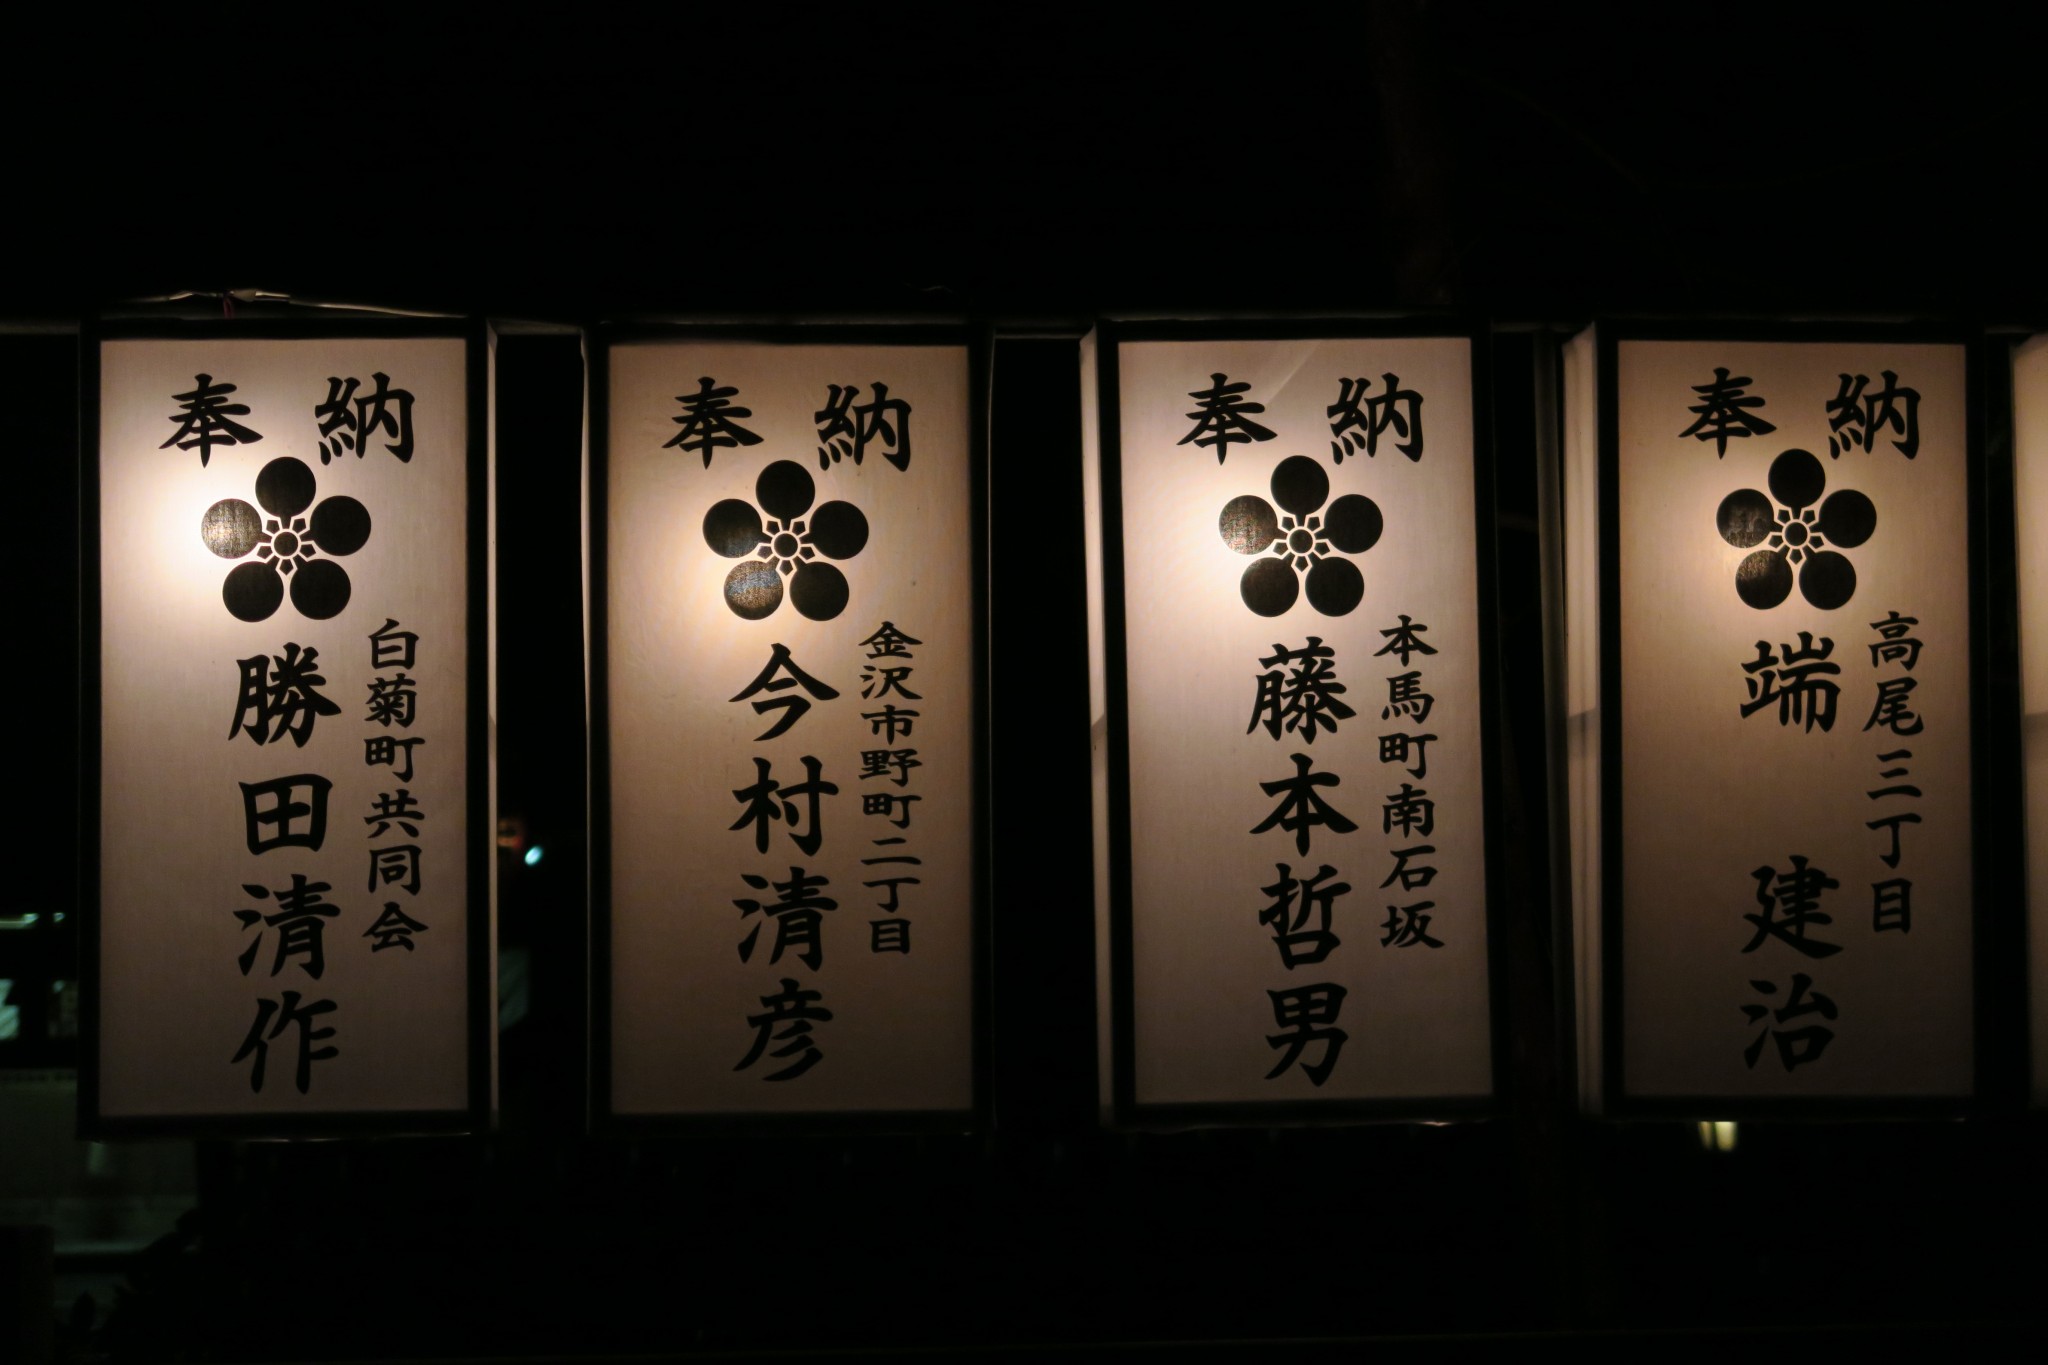 奉納
白菊町共同会
勝田清作
奉納
金沢市野町二丁目
今村清彦
奉納
本馬町南石坂
藤本哲男
奉納
高尾三丁目
端 建治